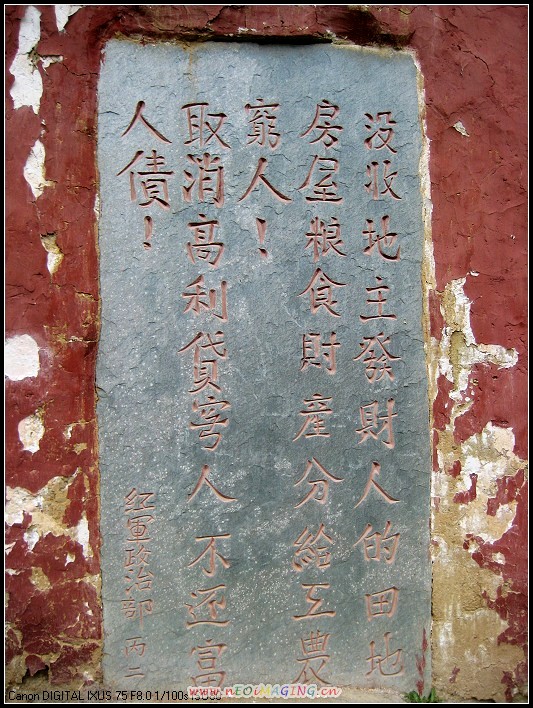 没收地主發財人的田地
房屋粮食財產分給工農
窮人！
取消高利貸窮人不还富
人債！
红軍政治部 丙二
Canon DIGITAL IXUS 75 F8.0 1/100s
www.nEOiMAGING.cn